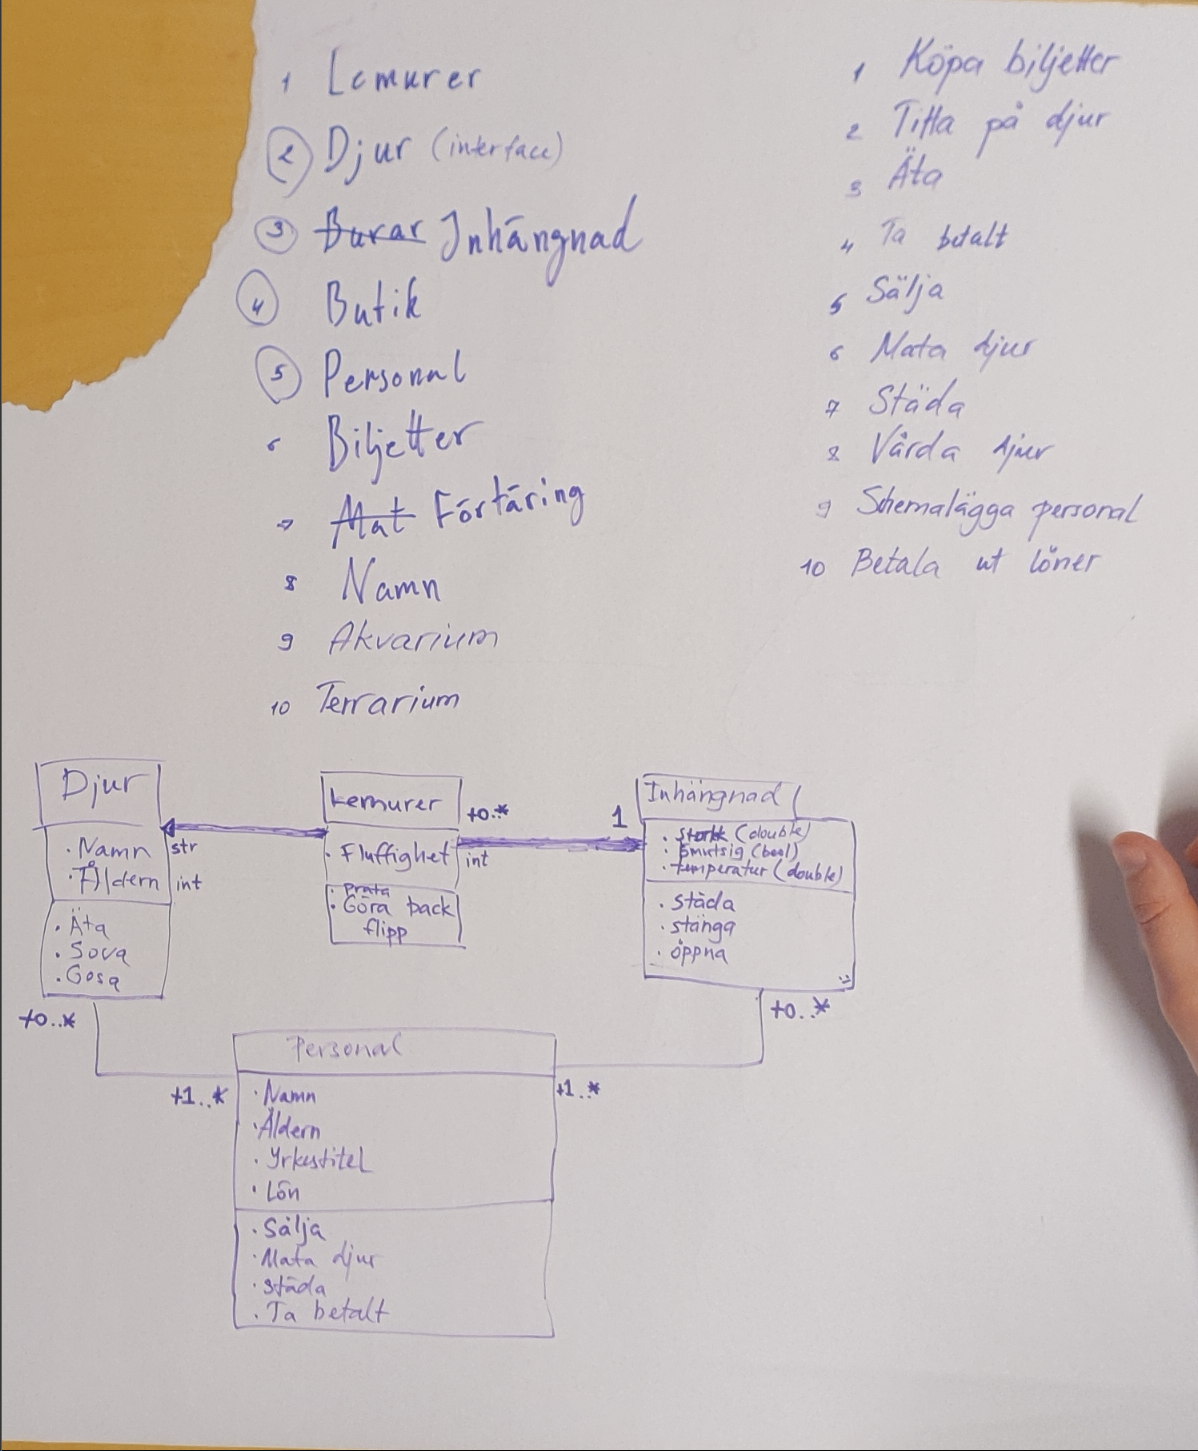 1 Lemurer
2 Djur (interface)
3 Burar Inhängnad
4 Butik
5 Personal
6 Biljetter
7 Mat Förtäring
8 Namn
9 Akvarium
10 Terrarium
1 Köpa biljetter
2 Titta på djur
3 Äta
4 Ta betalt
5 Sälja
6 Mata djur
7 Städa
8 Vårda djur
9 Schemalägga personal
10 Betala ut löner
Djur
· Namn str
· Åldern int
· Äta
· Sova
· Gosa
+0..*
Lemurer
+0..*
· Fluffighet int
· Prata
· Göra back
flipp
1
Inhängnad
· (double)
· Smutsig (bool)
· temperatur (double)
· städa
· stänga
· öppna
+0..*
Personal
+1..*
+1..*
· Namn
· Åldern
· Yrkestitel
· Lön
· Sälja
· Mata djur
· städa
· Ta betalt